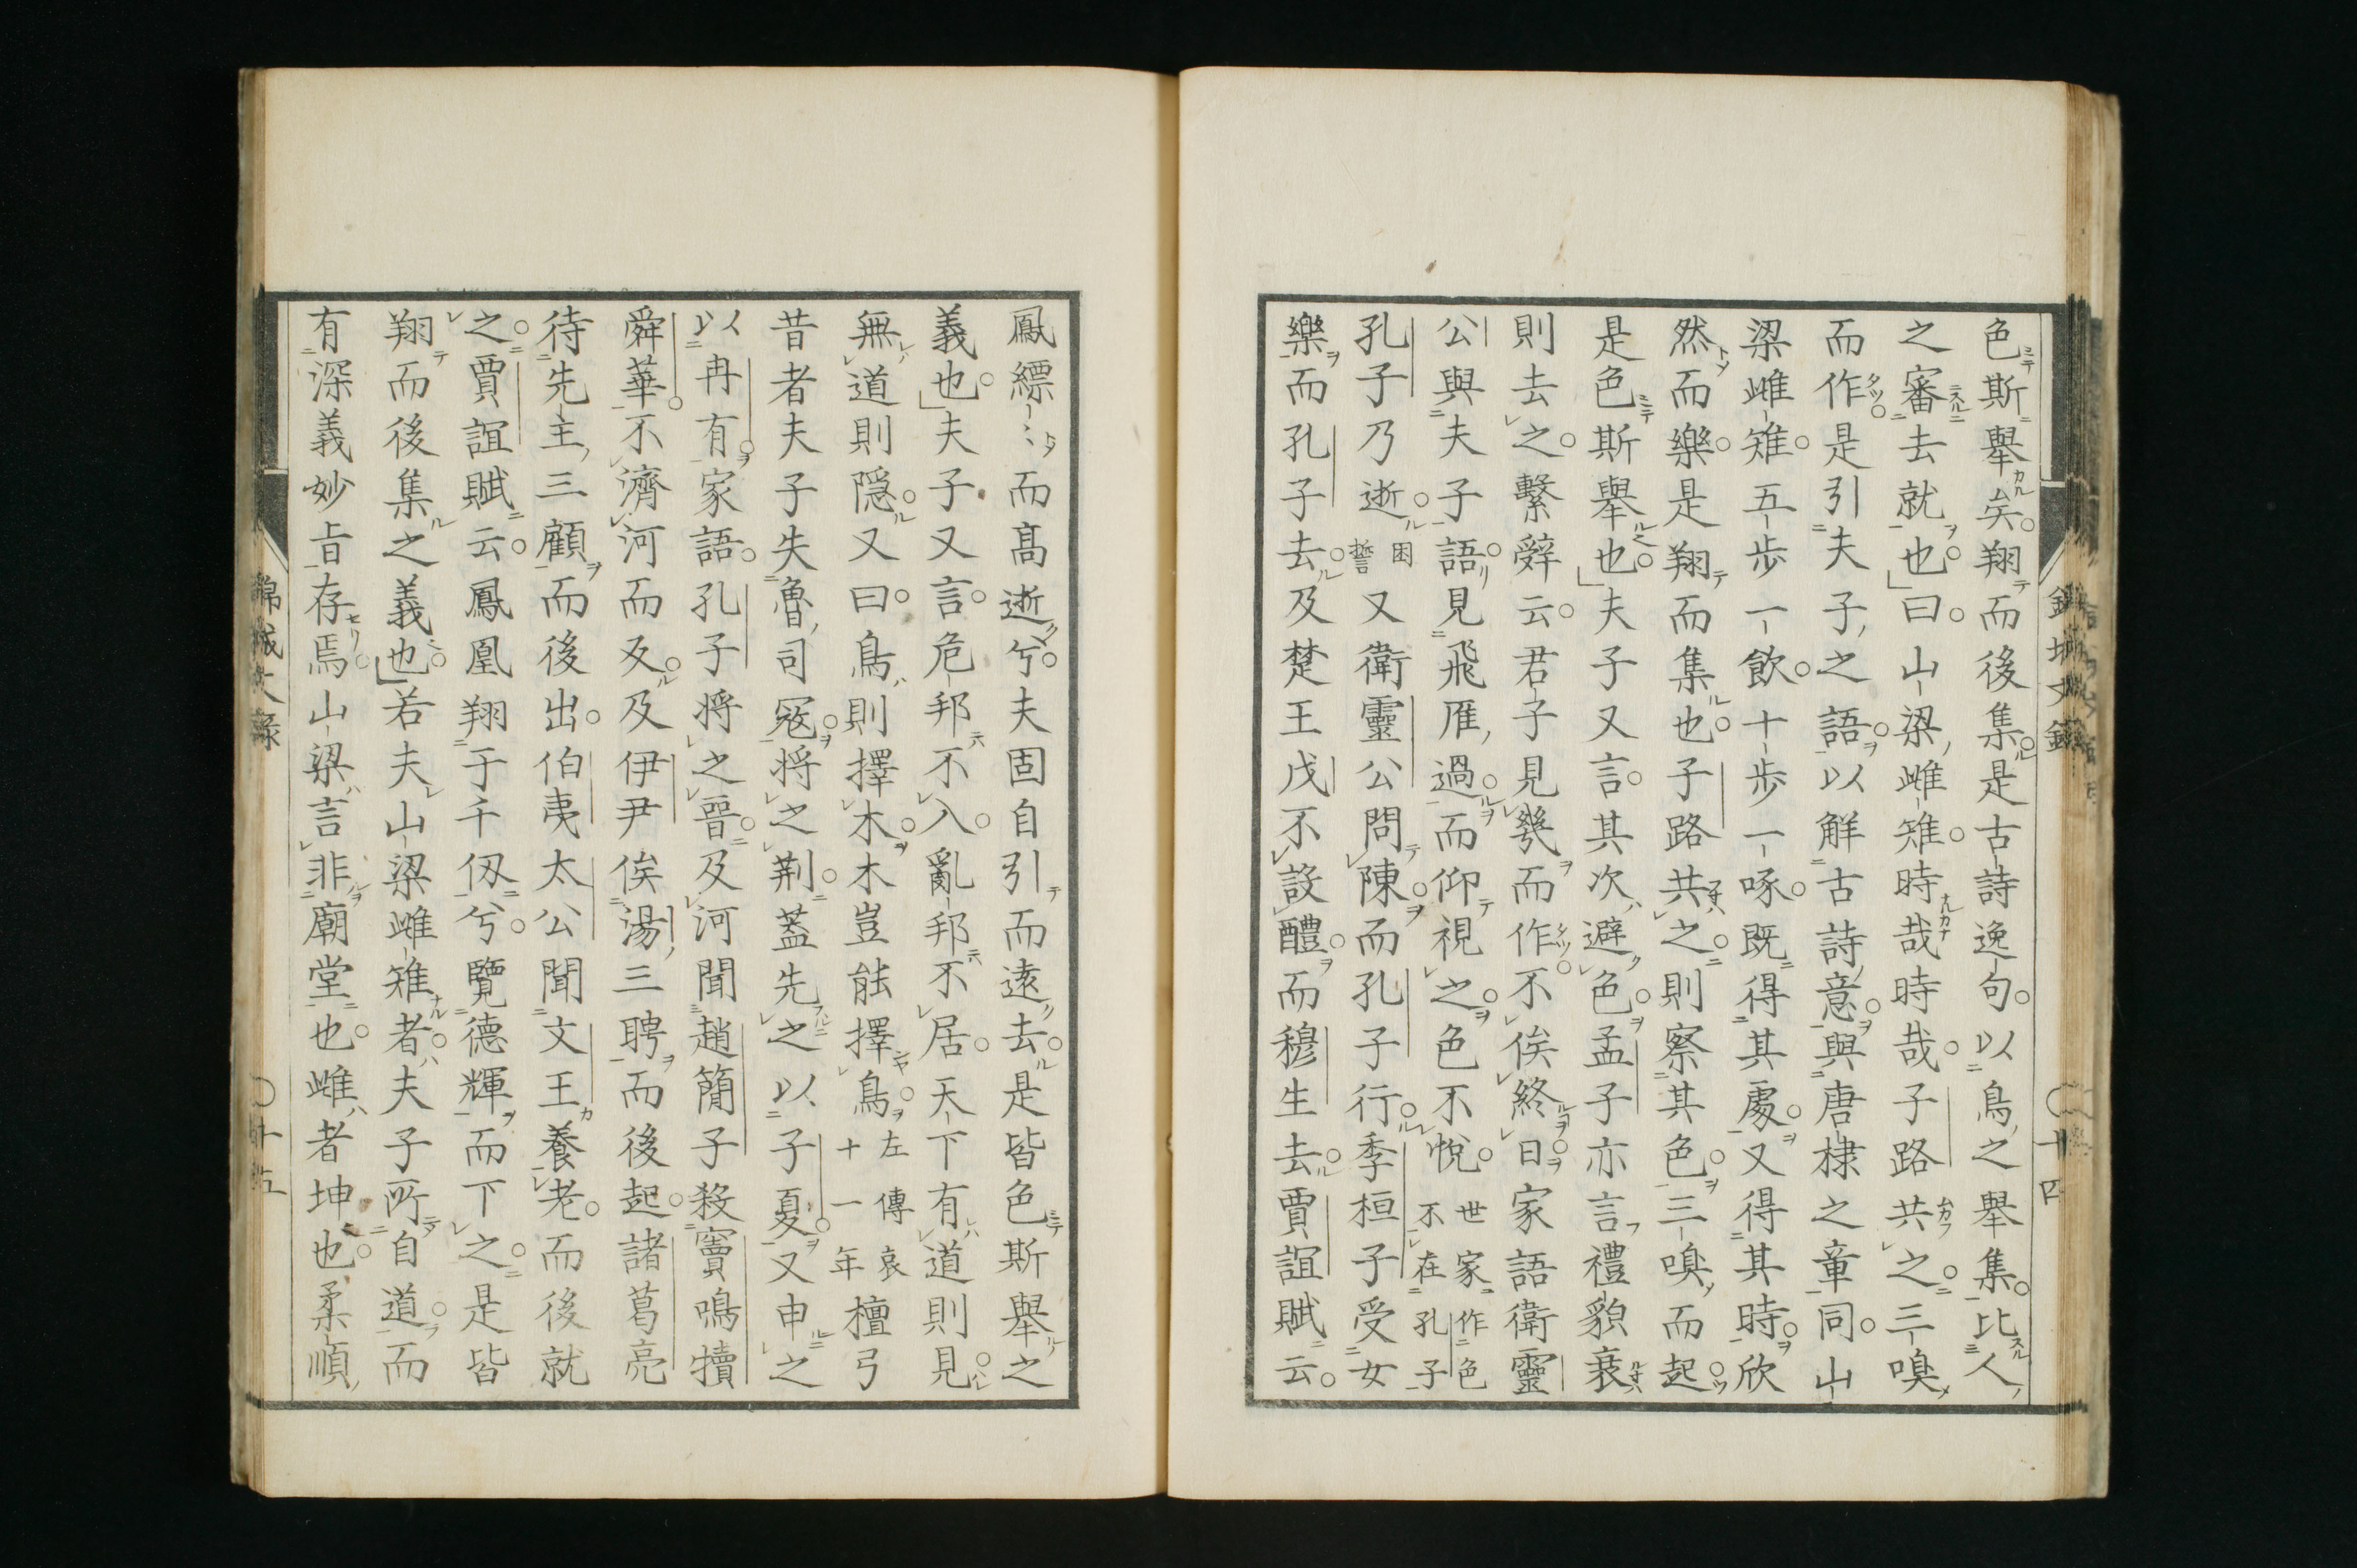 色斯舉矣翔而後集是古詩逸句以鳥之舉集比人
之審去就也曰山梁雌雉時哉時哉子路共之三嗅
而作是引夫子之語以解古詩意與唐棣之章同山
梁雌雉五歩一飲十歩一啄既得其處又得其時欣
然而樂是翔而集也子路共之則察其色三嗅而起
是色斯舉也夫子又言其次避色孟子亦言禮貌衰
則去之繫辭云君子見幾而作不俟終日家語衛靈
公與夫子語見飛雁過而仰視之色不悅世家作色不在孔子
孔子乃逝又衛靈公問陳而孔子行季桓子受女
樂而孔子去及楚王戊不設醴而穆生去賈誼賦云
錦城文録
十四
鳳縹〻而高逝兮夫固自引而遠去是皆色斯舉之
義也夫子又言危邦不入亂邦不居天下有道則見
無道則隠又曰鳥則擇木木豈能擇鳥左傳哀十一年檀弓
昔者夫子失魯司寇将之荆蓋先之以子夏又申之
以冉有家語孔子将之晉及河聞趙簡子殺竇鳴犢
舜華不濟河而反及伊尹俟湯三聘而後起諸葛亮
待先主三顧而後出伯夷太公聞文王養老而後就
之賈誼賦云鳳凰翔于千仭兮覽德輝而下之是皆
翔而後集之義也若夫山梁雌雉者夫子所自道而
有深義妙旨存焉山梁言非廟堂也雌者坤也柔順
錦城文録
十五